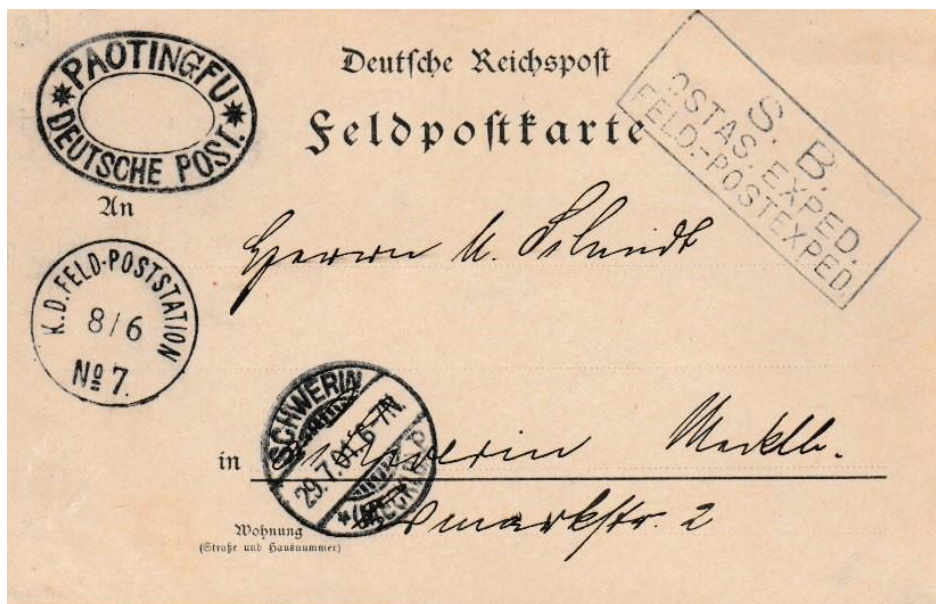 PAOTINGFU
DEUTSCHE POST.
Deutsche Reichspost
Feldpostkarte
S. B.
OSTAS. EXPED.
FELD-POSTEXPED.
An
Herrn
K.D. FELD-POSTSTATION
8/6
No 7.
SCHWERIN
29.7.01. 6-7N.
in Schwerin Mecklb.
Wohnung
(Straße und Hausnummer)